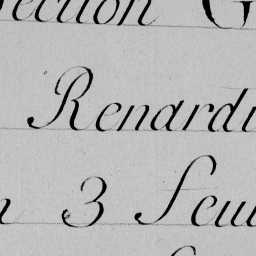 ection G
Renardi
n 3 Feui